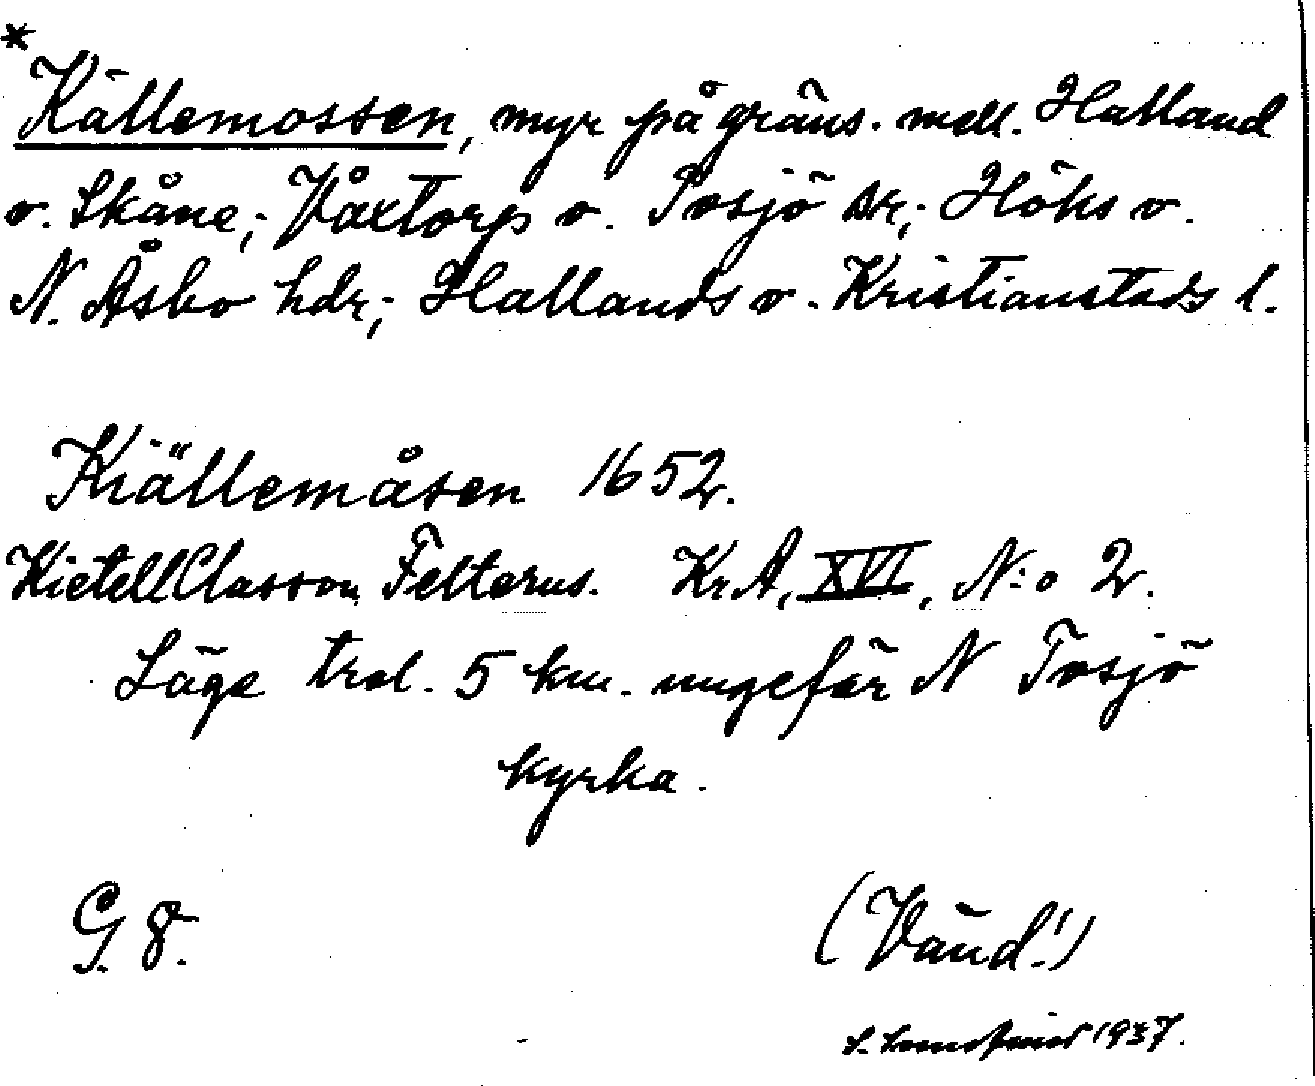 *
Källemossen, myr på gräns. mell. Halland
o. Skåne; Våxtorp o. Tosjö sr; Höks o.
N. Åsbo hdr; Hallands o. Kristianstads l.
Kiällemåsen 1652.
Kietell Classon Felterus. KrA, XVI, N:o 2.
Läge trol. 5 km. ungefär N Tosjö
kyrka.
G. 8.
(Vänd!)
1937.